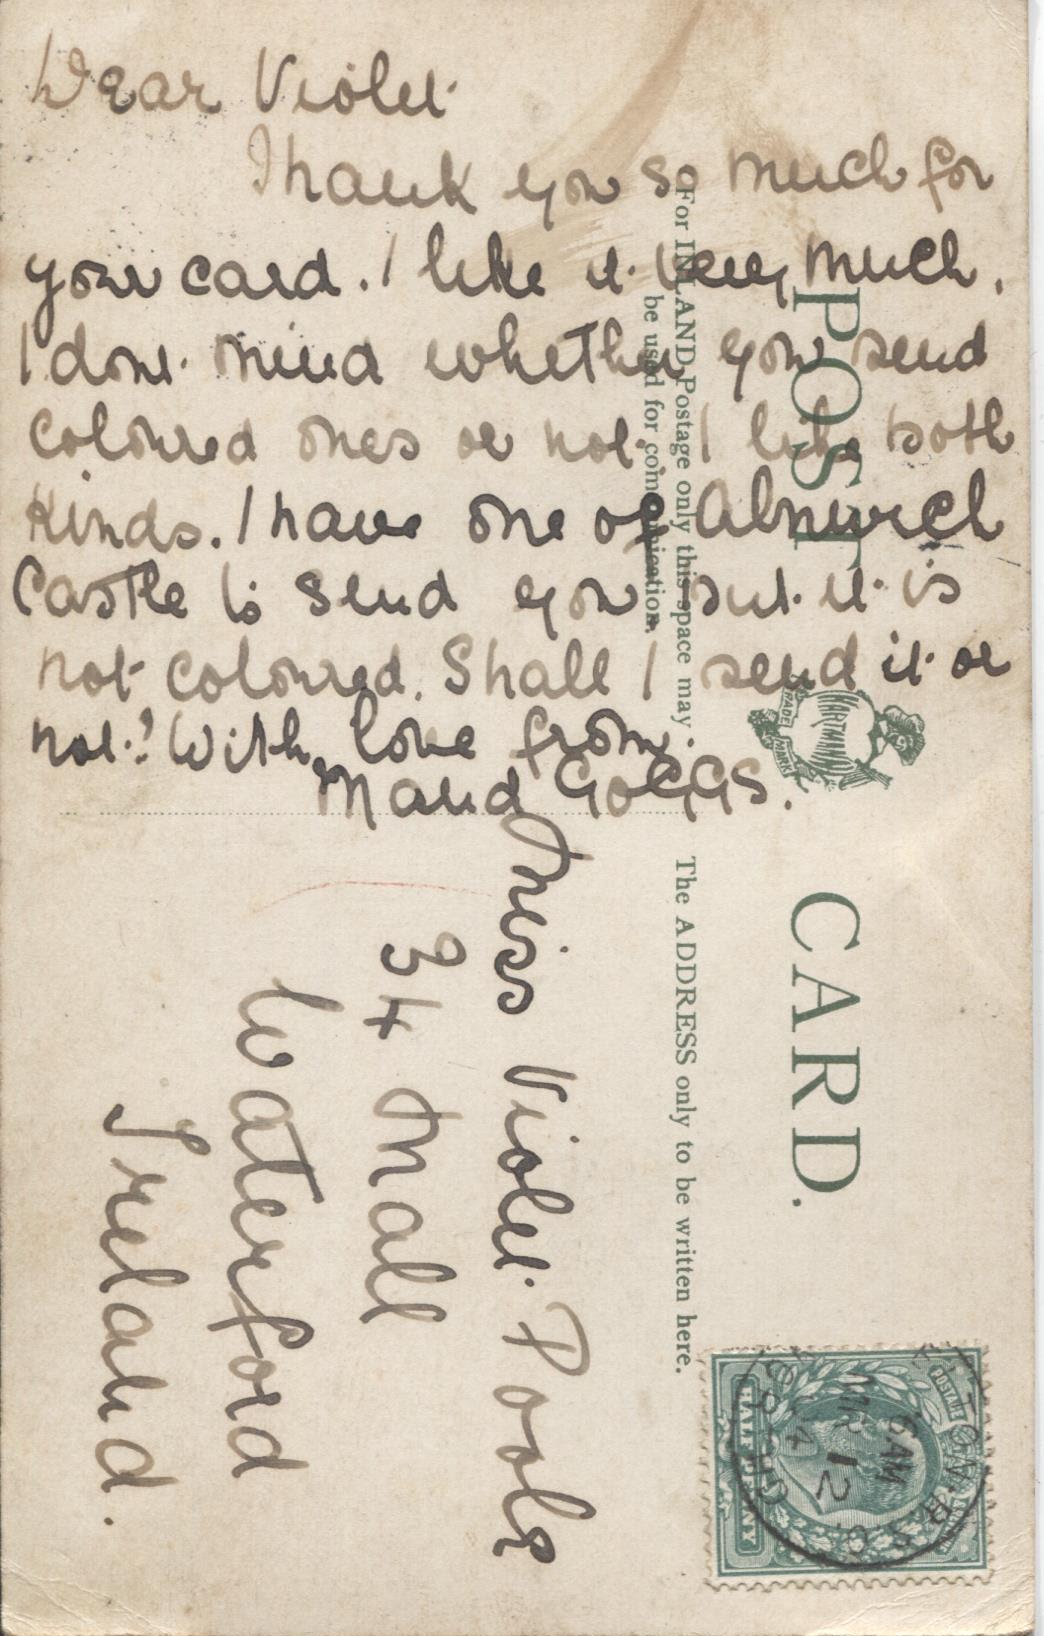 Dear Violet
Thank you so much for
your card. I like it very much.
I dont mind whether you send
coloured ones or not. I like both
kinds. I have one of Alnwick
Castle to send you but it is
not coloured. Shall I send it or
not? With love from
Maud GOGGS.
POST CARD.
For INLAND Postage only this space may
be used for communication.
The ADDRESS only to be written here.
HARTMANN
TRADE MARK
Miss Violet Poole
34 Mall
Waterford
Ireland.
POSTAGE
HALF PENNY
6 AM
MR 12
04